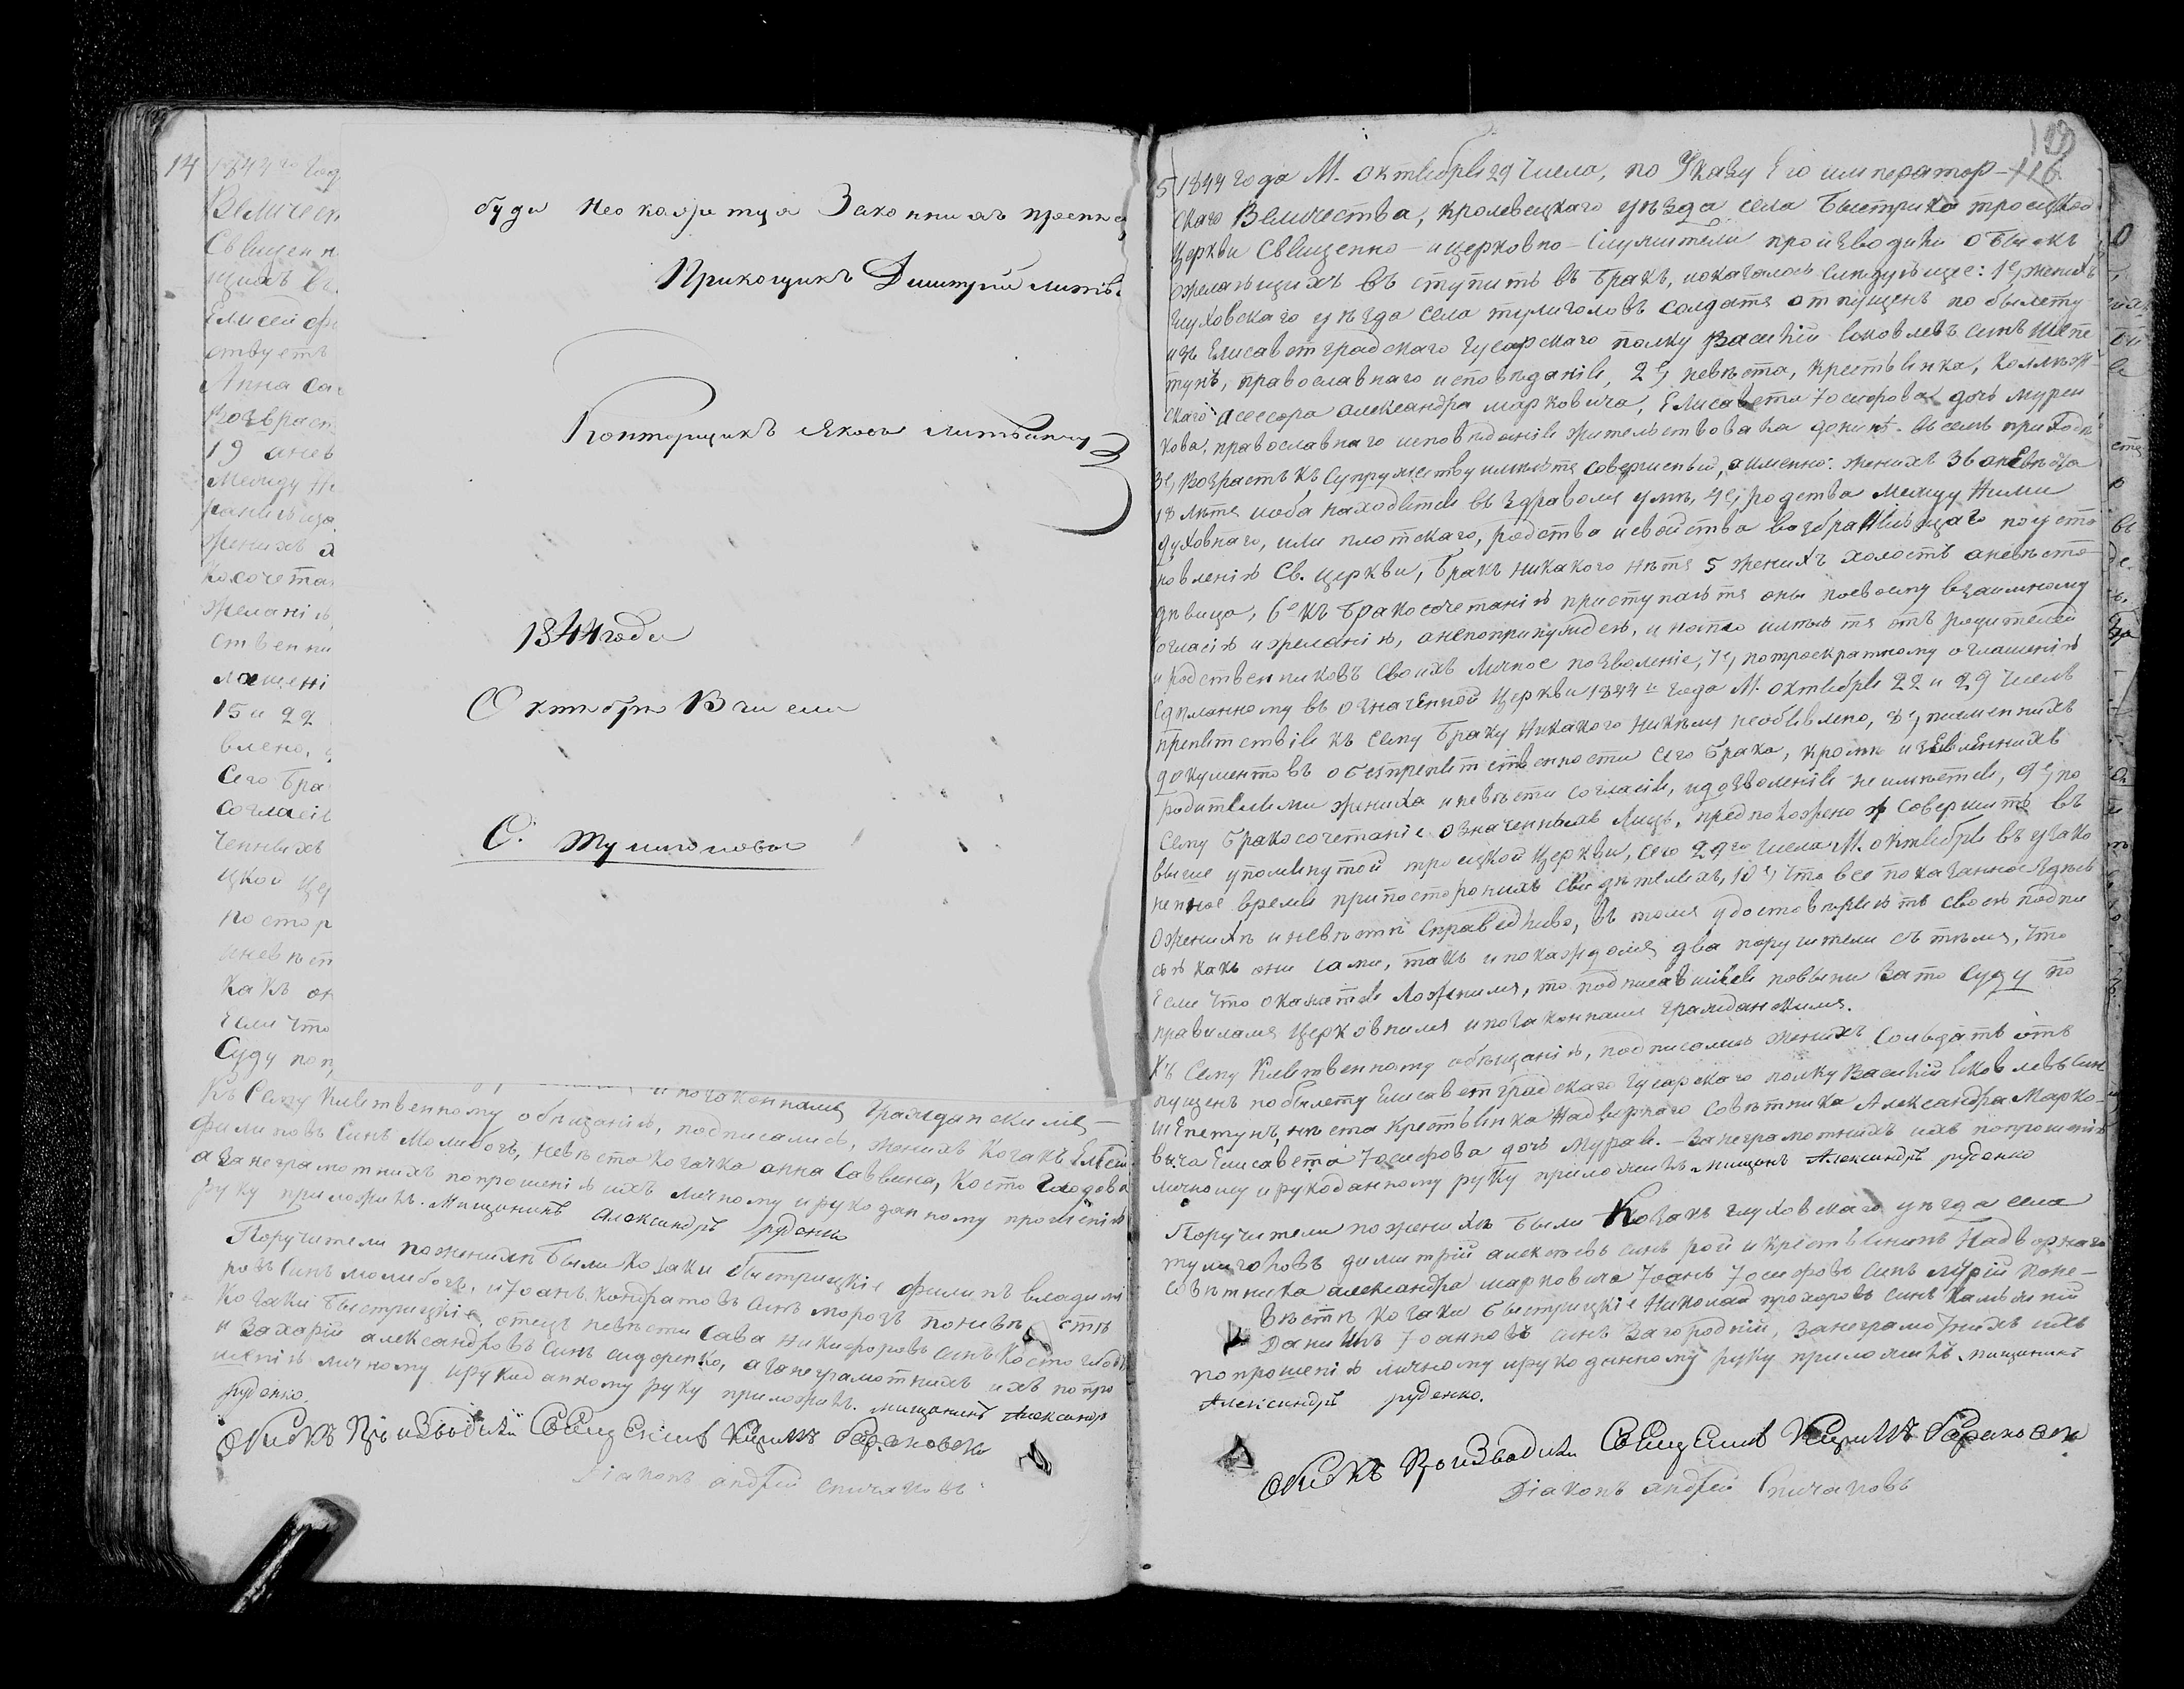 14 1844го год
Величест
Священн
щихъ въ
Елисей Фи
ствуетъ
Анна Сав
Возраст
19 аневѣ
Между Ни
раняюща
женихъ х
косочетан
желанію,
ственни
лашені
15 и 22
влено,
Сего Бра
согласія
ченныхъ
цкой Це
постор
иневѣст
какъ он
Если что
Суду поп
буди неокажется Законнихъ препя
Прикащикъ Дмитрій Литв
Конторщикъ Яковъ Литвин
1844 года
Октября 13 числа
С. Тулиголовы
и позаконнамъ Гражданскимъ
Къ Сему Клятвенному обѣщанію, подписались, женихъ Козакъ Елисей
Филиповъ Синъ Молибогъ, невѣста козачка Анна Саввина, Костоглодова
а Занеграмотнихъ попрошенію ихъ личному и рукоданному прошенію
руку приложилъ. Мищанинъ Александръ Руденко
Поручители поженихѣ были козаки быстрицкіе Филипъ владимі
ровъ Синъ молибогъ, и Іоанъ кондратовъ синъ морозъ поневѣстѣ
Козаки быстрицкіе, отецъ невѣсти Сава никифоровъ синъ Костоглодъ
и Захарій александровъ Синъ сидоренко, а Занеграмотнихъ ихъ попро
шенію личному и рукоданному руку приложилъ. мищанинъ Александръ
руденко.
Обискъ Производили Священникъ
Діаконъ андрей Спичаковъ
116
5 1844 года М. октября 29 числа, по Указу Его император-
скаго Величества, кролевецкаго уѣзда села Быстрика троецкой
Церкви Священно-и церковно-Служители производили обыскъ
ожелающихъ въступить въ Бракъ, ноказалось слѣдующее: 1е, женихъ
глуховскаго уѣзда села тулиголовъ солдатъ отпущенъ побылету
изъ Елисаветградскаго Гусарскаго полку Василій Яковлевъ синъ Шепе
тунъ, православнаго исповѣданія, 2е, невѣста, крестьянка, коллеж-
скаго асессора александра марковича, Елисавета Іосифова дочь мурей
кова, православнаго исповѣданія жительствовала донинѣ въ семъ приходѣ
3е, Возрастъ къ Супружеству имѣютъ совершеный, а именно: женихъ 36 аневѣста
18 лѣтъ иоба находятся въ здравомъ умѣ, 4е, родства между Ними
духовнаго, или плотскаго, родства исвойства возбраняющаго поуста
новленію Св. церкви, бракъ никакого нѣтъ 5 женихъ холостъ аневѣста
дѣвица, 6е къ бракосочетанію приступаютъ они посвоему взаимному
согласію ижеланію, анепопринужденію, и нато имѣютъ отъ родителей
и родственниковъ своихъ личное позволеніе, 7е, потроекратному оглашенію
сдѣланному въ означенной церкви 1844го года М. октября 22 и 29 числъ
препятствія къ сему браку никакого никѣмъ необявлено, 8е, писменнихъ
документовъ обезпрепятственности сего брака, кромѣ изявленнихъ
родителями жениха иневѣсти согласія, идозволенія неимѣется, 9е, по
сему бракосочетаніе означенныхъ лицъ, предположено совершить въ
выше упомянутой троецкой церкви, сего 29го числа М. октября въ узако
ненное время припосторонихъ свидѣтеляхъ, 10е, что все показанное здѣсь
оженихѣ и невѣстѣ справедливо, въ томъ удостовѣряютъ своею подпи
сью какъ они сами, такъ и покаждомъ два поручители съ тѣмъ, что
Если что окажется ложнимъ, то подписавшіеся повыни зато суду по
правиламъ церковнимъ ипозаконнамъ гражданскимъ.
Къ Сему Клятвенному обѣщанію, подписались женихъ солдатъ от
пущенъ побылету Елисаветградскаго гусарскаго полку Василій Яковлевъ синъ
Шепетунъ, невѣста Крестьянка Надворнаго совѣтника Александра Марко-
вича Елисавета Іосифова дочь Мурав. - Занеграмотнихъ ихъ попрошенію
личному и рукоданному руку приложилъ мищанинъ Александръ руденко
Поручители поженихѣ были Козакъ глуховскаго уѣзда села
тулиголовъ димитрій алексѣевъ синъ рой и крестьянинъ Надворнаго
совѣтника александра марковича Іоанъ Іосифовъ синъ мурій поне-
вѣстѣ козаки быстрицкіе Николай прохоровъ синъ
Данило Іоанновъ синъ Загородній, Занеграмотнихъ ихъ
попрошенію личному ирукоданному руку приложилъ. мищанинъ
Александръ руденко.
Обискъ Производили Священникъ
Діаконъ андрей Спичаковъ